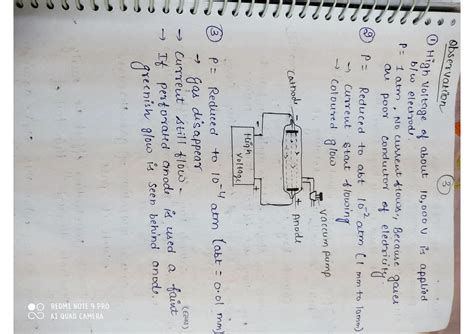 ③
Observation
① High Voltage of about 10,000 V is applied
b/w eletrods
P = 1 atm, No current flows, Because gases
as poor conductor of electricity
② P = Reduced to abt 10⁻² atm (1 mm to 10mm)
→ current start flowing
→ coloured glow
vaccum pump
cathode
Anode
High
voltage
- +
③ P = Reduced to 10⁻⁴ atm (abt = 0.01 mm)
→ Gas disappear
→ current still flow
→ If perforated anode is used a faint
greenish glow is seen behind anode.
REDMI NOTE 9 PRO
AI QUAD CAMERA